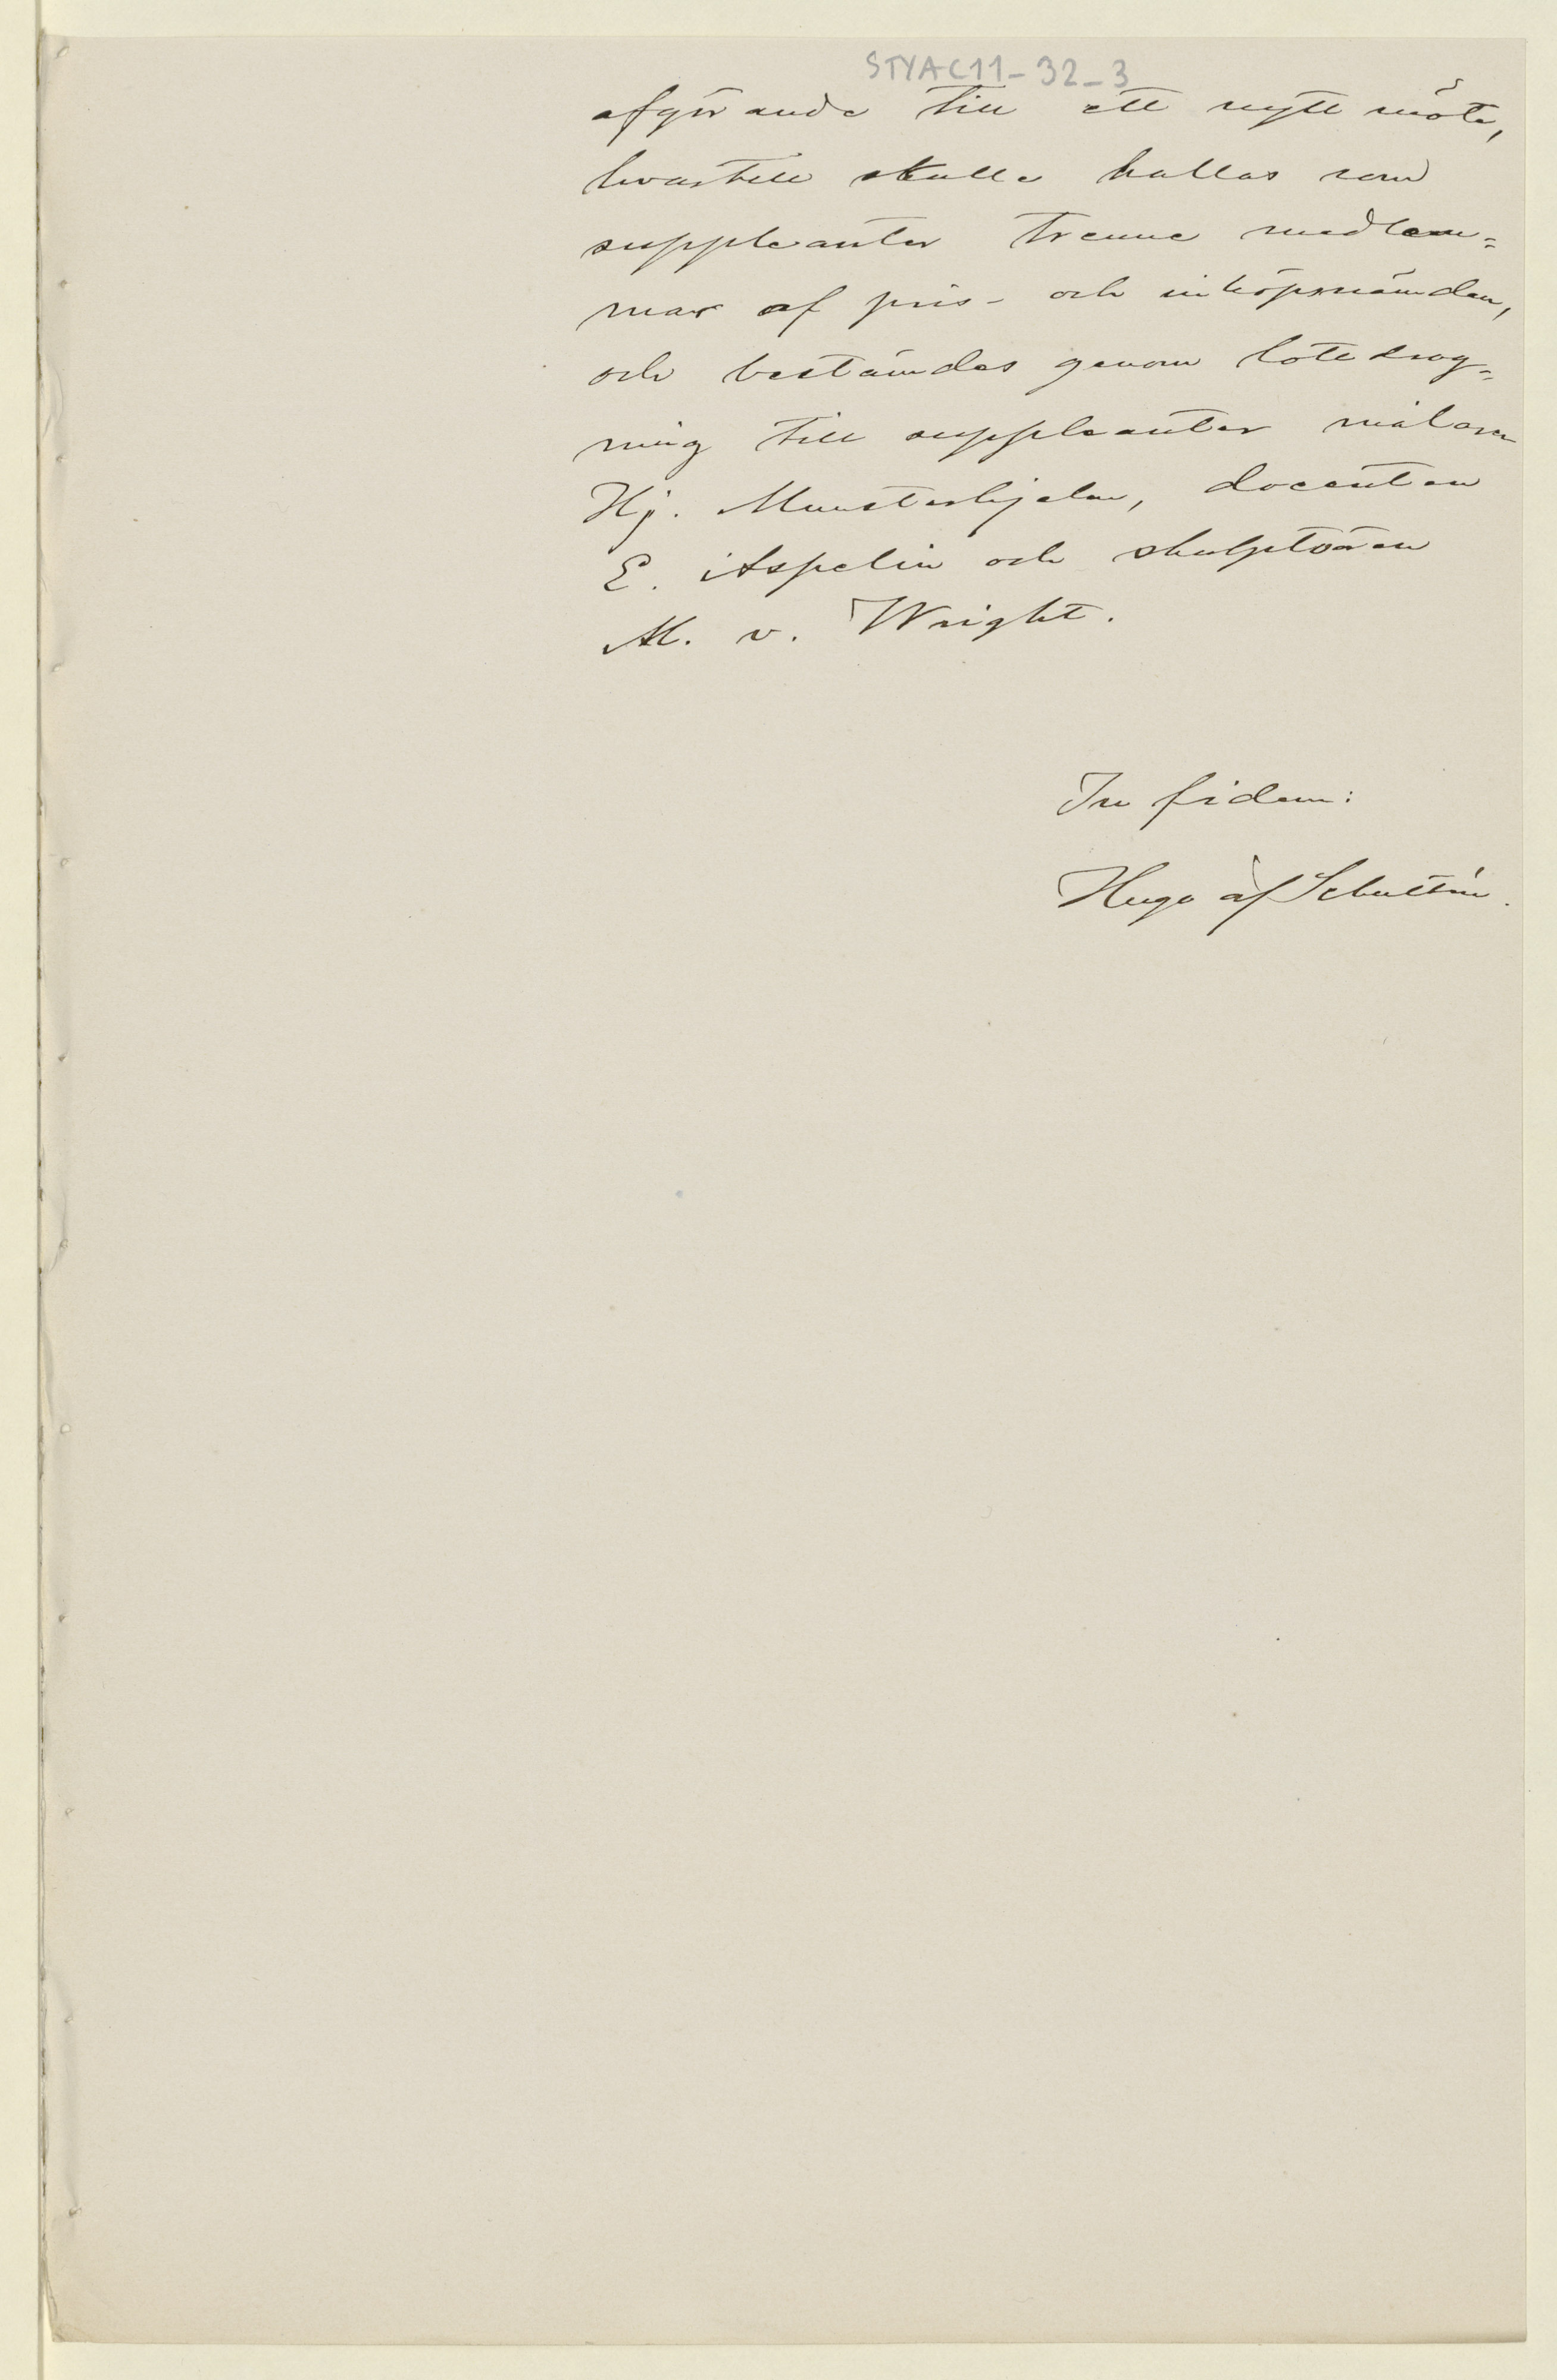 STYAC11-32-3
afgörande till ett nytt möte,
hvartill skulle kallas som
suppleanter trenne medlem=
mar af pris- och inköpsnämden,
och bestämdes genom lotedrag=
ning till suppleanter målaren
Hj. Munsterhjelm, docenten
E. Aspelin och skulptören
M. v. Wright.
In fidem:
Hugo af Schultén.